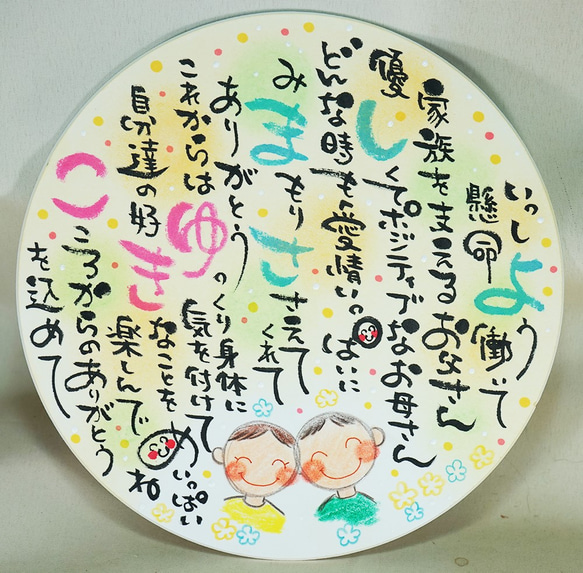 いっしょう
懸命働いて
家族を支えるお父さん
優しくてポジティブなお母さん
どんな時も愛情いっぱいに
みまもりささえてくれて
ありがとう
これからはゆっくり身体に
気を付けて
自分達の好きなことをめいっぱい
楽しんでね
こころからのありがとう
を込めて